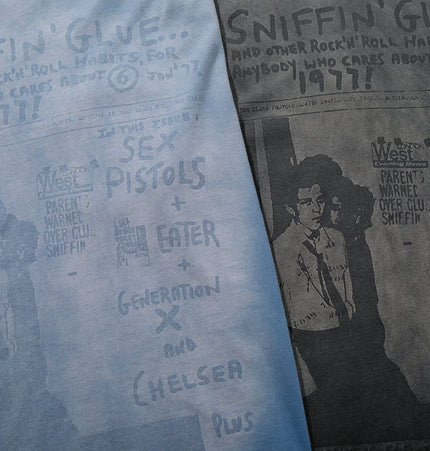 FIN' GLUE...
CK'N' ROLL HABITS, FOR
O CARES ABOUT 6 JAN '77.
77!
IN THIS ISSUE:
SEX
PISTOLS
+
EATER
+
GENERATION
X
AND
CHELSEA
PLUS
West
PARENTS
WARNED
OVER GLU..
SNIFFIN
SNIFFIN' GLU
AND OTHER ROCK'N'ROLL HAB
ANYBODY WHO CARES ABOUT
1977!
LONDON
West
PARENTS
WARNED
OVER GLU..
SNIFFIN